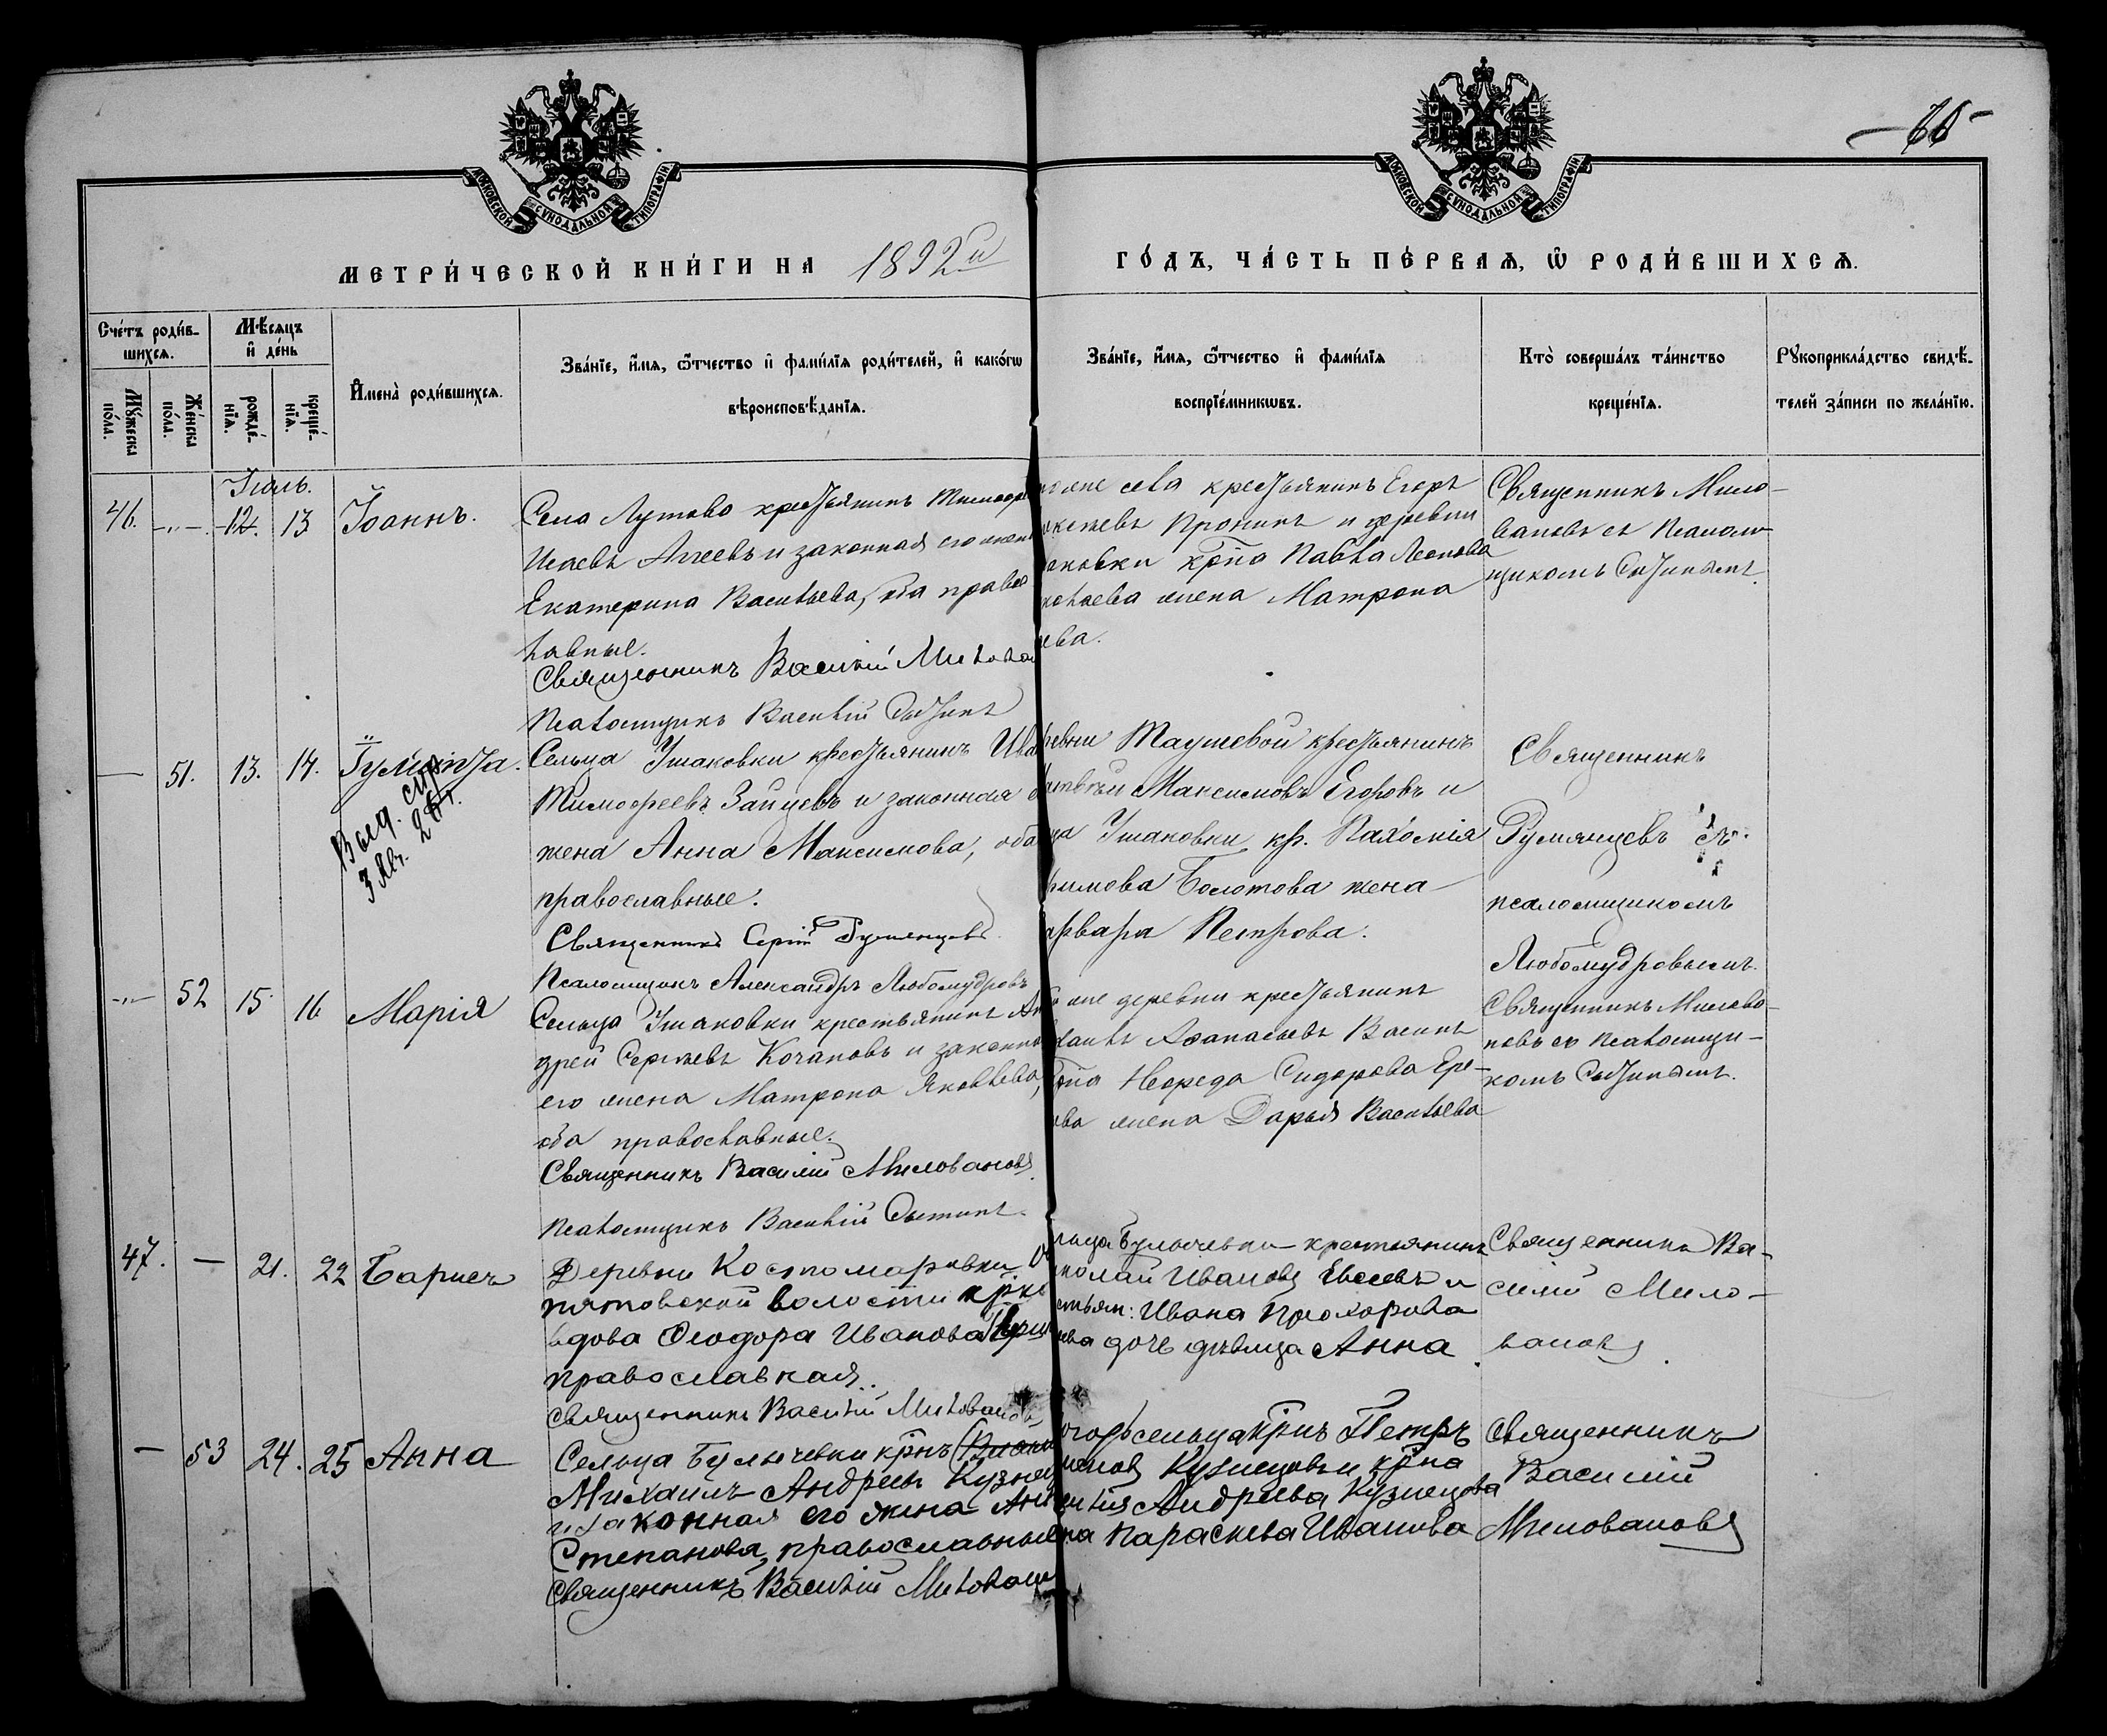 66
МОСКОВСКОЙ СѴНОДАЛЬНОЙ ТИПОГРАФІИ
МОСКОВСКОЙ СѴНОДАЛЬНОЙ ТИПОГРАФІИ
МЕТРИ́ЧЕСКОЙ КНИ́ГИ НА 1892й ГО́ДЪ, ЧА́СТЬ ПЕ́РВАѦ, Ѡ҆ РОДИ́ВШИХСѦ.
Сче́тъ роди́в-
шихсѧ.
Мꙋ́жеска по́ла.
Же́нска по́ла.
Мѣ́сѧцъ
и҆ де́нь
рожде́-
нїѧ.
креще́-
нїѧ.
И҆мена̀ роди́вшихсѧ.
Зва́нїе, и҆́мѧ, ѻ҆́тчество и҆ фами́лїѧ роди́телей, и҆ како́гѡ
вѣроисповѣ́данїѧ.
Зва́нїе, и҆́мѧ, ѻ҆́тчество и҆ фами́лїѧ
воспрїе́мникѡвъ.
Кто̀ соверша́лъ та́инство
креще́нїѧ.
Рꙋкоприкла́дство свидѣ́-
телей за́писи по жела́нїю.
Іюль.
46. -„- 12. 13 Іоаннъ.
Села Лутово крестьянинъ Тимоѳе
Исаевъ Агеевъ и законная его жен
Екатерина Васильева, оба правос
лавные.
Священникъ Василій Милова
Псаломщикъ Василій Сытинъ
оже села крестьянинъ Егоръ
Пронинъ и деревни
кр̄на Павла Леонова
жена Матрона
ева.
Священникъ Мило-
вановъ съ псалом-
щикомъ Сытинымъ.
— 51. 13. 14. Іулитта.
Выд. спр.
3 Авг.
Сельца Ушаковки крестьянинъ Ива
Тимоѳеевъ Зайцевъ и законная е
жена Анна Максимова, оба
православные.
Священникъ Сергій Румянцевъ
Псаломщикъ Александръ Любомудровъ
ревни Таушевой крестьянинъ
Матвѣй Максимовъ Егоровъ и
ца Ушаковки кр. Пахомія
Болотова жена
арвара Петрова.
Священникъ
Румянцевъ съ
псаломщикомъ
Любомудровымъ.
-„- 52 15 16 Марія
Сельца Ушаковки крестьянинъ Ан
дрей Сергѣевъ Кочановъ и законна
его жена Матрона Яковлева,
оба православные.
Священникъ Василій Миловановъ
Псаломщикъ Василій Сытинъ.
же деревни крестьянинъ
Аѳанасьевъ Васинъ
Сидорова Ере-
ова жена Дарья Васильева
Священникъ Милова-
новъ съ псаломщи-
комъ Сытинымъ.
47. — 21. 22 Борисъ
Деревни Костомаровки
волости крк
вдова Ѳеодора Иванова
православная.
Священникъ Василій Миловановъ
льца Булычевки крестьянинъ
иколай Ивановъ Евсеевъ и
стьян: Ивана Прохорова
ева дочь дѣвица Анна
Священникъ Ва-
силій Мило-
вановъ
— 53 24. 25 Анна
Сельца Булычевки кр̄нъ
Михаилъ Андреевъ Кузнец
и законная его жена Анн
Степанова, православные
Священникъ Василій Миловано
сельца кр̄нъ Петръ
Кузнецовъ и кр̄на
Андреева Кузнецова
на Параскева Иванова
Священникъ
Василій
Миловановъ